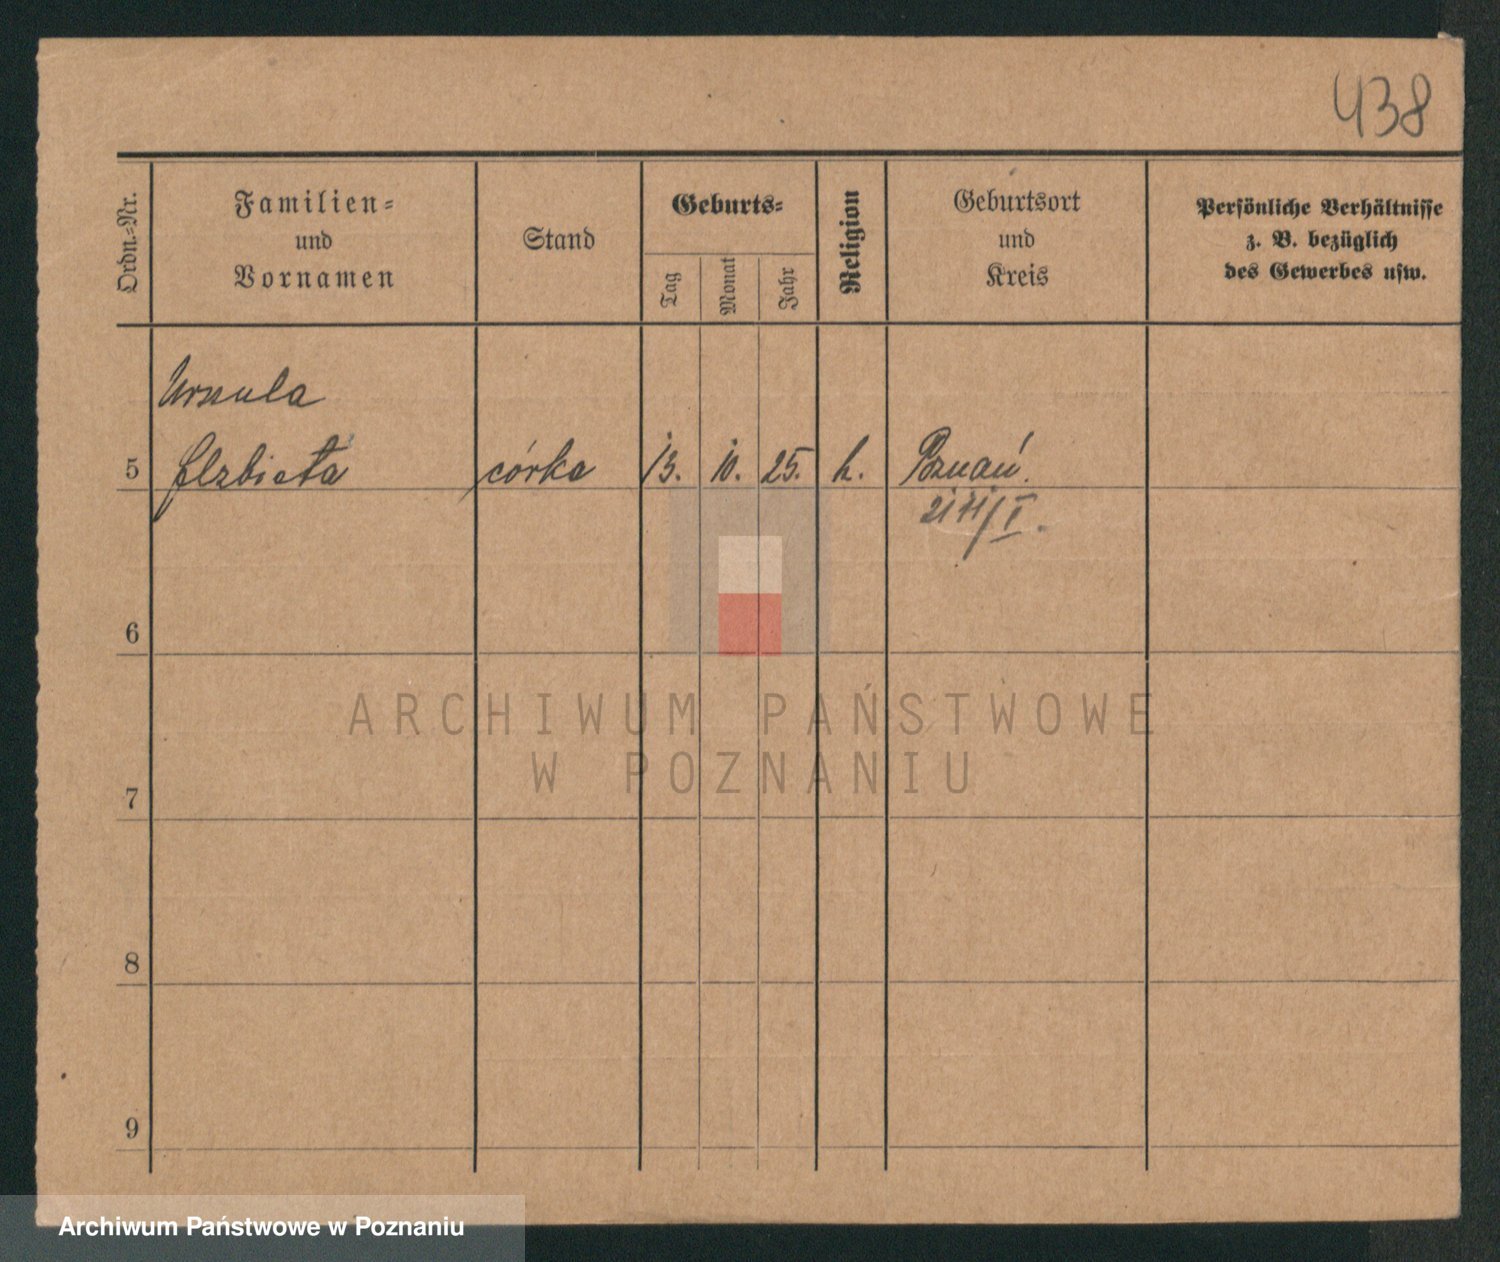 438
Ordn.=Nr.
Familien=
und
Vornamen
Stand
Geburts=
Tag
Monat
Jahr
Religion
Geburtsort
und
Kreis
Persönliche Verhältnisse
z. B. bezüglich
des Gewerbes usw.
Urszula
5 Elzbieta córka 13. 10. 25. k. Poznań.
6
ARCHIWUM PAŃSTWOWE
W POZNANIU
7
8
9
Archiwum Państwowe w Poznaniu